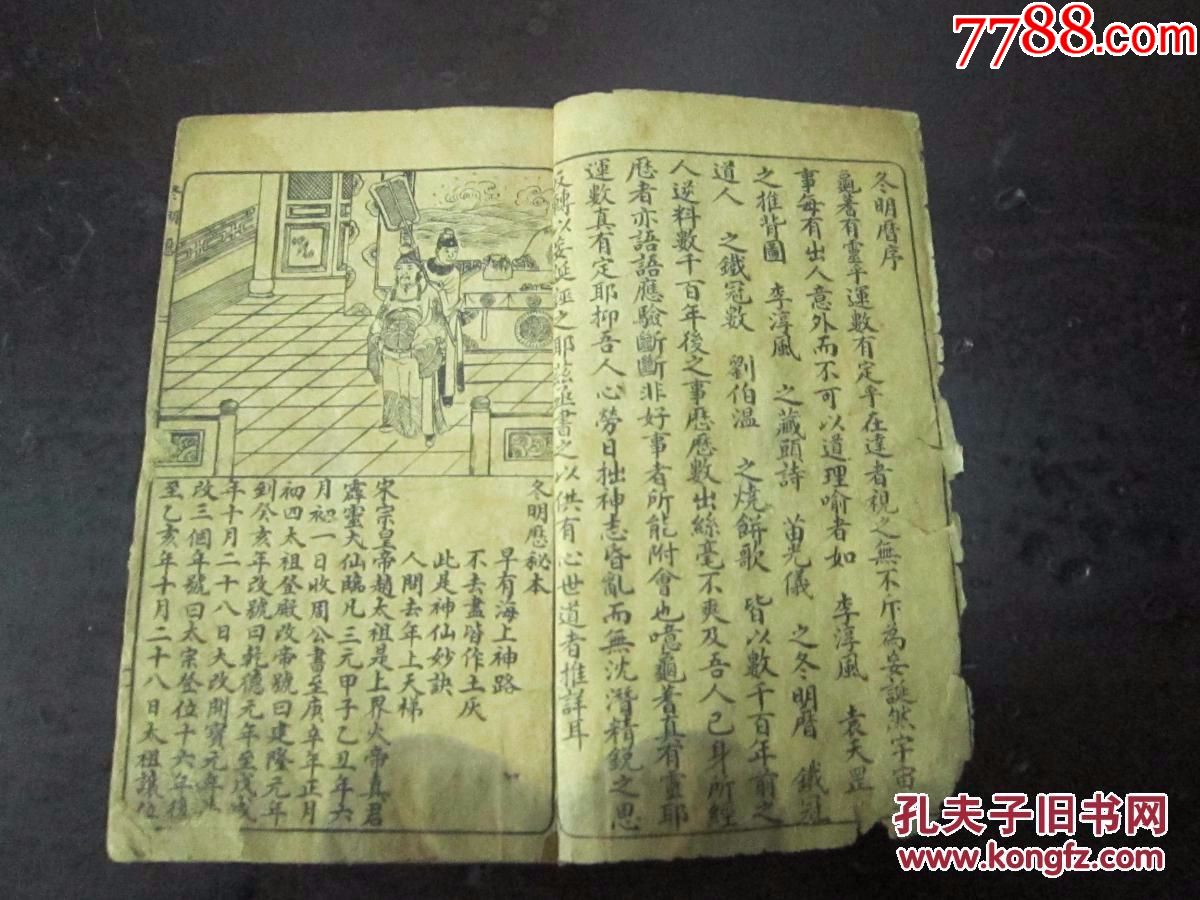 7788.com
冬明曆序
龜蓍有靈乎運數有定乎在達者視之無不斥為妄誕然宇宙
事每有出人意外而不可以道理喻者如 李淳風 袁天罡
之推背圖 李淳風 之藏頭詩 苗光儀 之冬明曆 鐵冠
道人 之鐵冠數 劉伯溫 之燒餅歌 皆以數千百年前之
人逆料數千百年後之事歷歷數出絲毫不爽及吾人已身所經
歷者亦語語應驗斷斷非好事者所能附會也噫龜蓍真有靈耶
運數真有定耶抑吾人心勞日拙神志昏亂而無沈潛精銳之思
反轉以妄誕之耶茲書之以供有心世道者推詳耳
冬明
冬明歷秘本
早有海上神路
不去盡皆作土灰
此是神仙妙訣
人間去年上天梯
宋宗皇帝趙太祖是上界火帝真君
霹靈大仙臨凡三元甲子乙丑年六
月初一日收周公書至庚辛年正月
初四太祖登殿改帝號曰建隆元年
到癸亥年改號曰乾德元年至戊
年十月二十八日大改開寶元年
改三個年號曰太宗登位十六年後
至乙亥年十月二十八日太祖讓位
孔夫子旧书网
www.kongfz.com